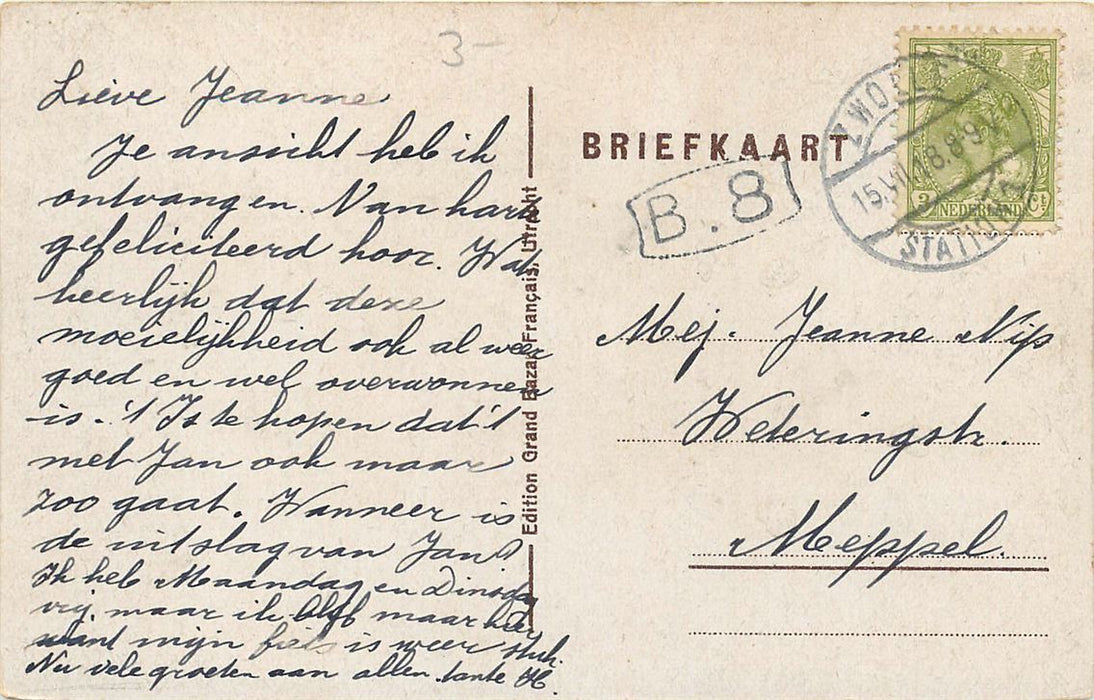 3-
Lieve Jeanne
Je ansicht heb ik
ontvangen. Van harte
gefeliciteerd hoor. Wat
heerlijk dat deze
moeielijkheid ook al weer
goed en wel overwonnen
is. 't Is te hopen dat 't
met Jan ook maar
zoo gaat. Wanneer is
de uitslag van Jan?
Ik heb Maandag en Dinsdag
vrij, maar ik blijf maar hier
want mijn fiets is weer stuk.
Nu vele groeten aan allen. tante H.
Edition Grand Bazar Français, Utrecht
BRIEFKAART
B. 8
ZWOLLE
15.VII.18.8-9V
STATION
NEDERLAND
Mej. Jeanne Nip
Weteringstr.
Meppel.